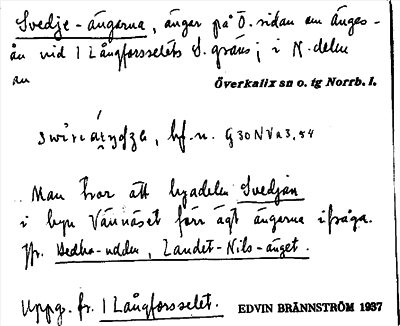 Svedje-ängerna, ängar på Ö. sidan om Änges-
ån vid 1 Långforsselets S. gräns; i N. delen
av Överkalix sn o. tg Norrb. l.
hf. n. G 30 N V a 3, 54
Man tror att byadelen Svedjan
i byn Vännäset förr ägt ängarna ifråga.
Jfr. Hedka-udden, Landet-Nils-änget.
Uppg. fr. 1 Långforsselet. EDVIN BRÄNNSTRÖM 1937